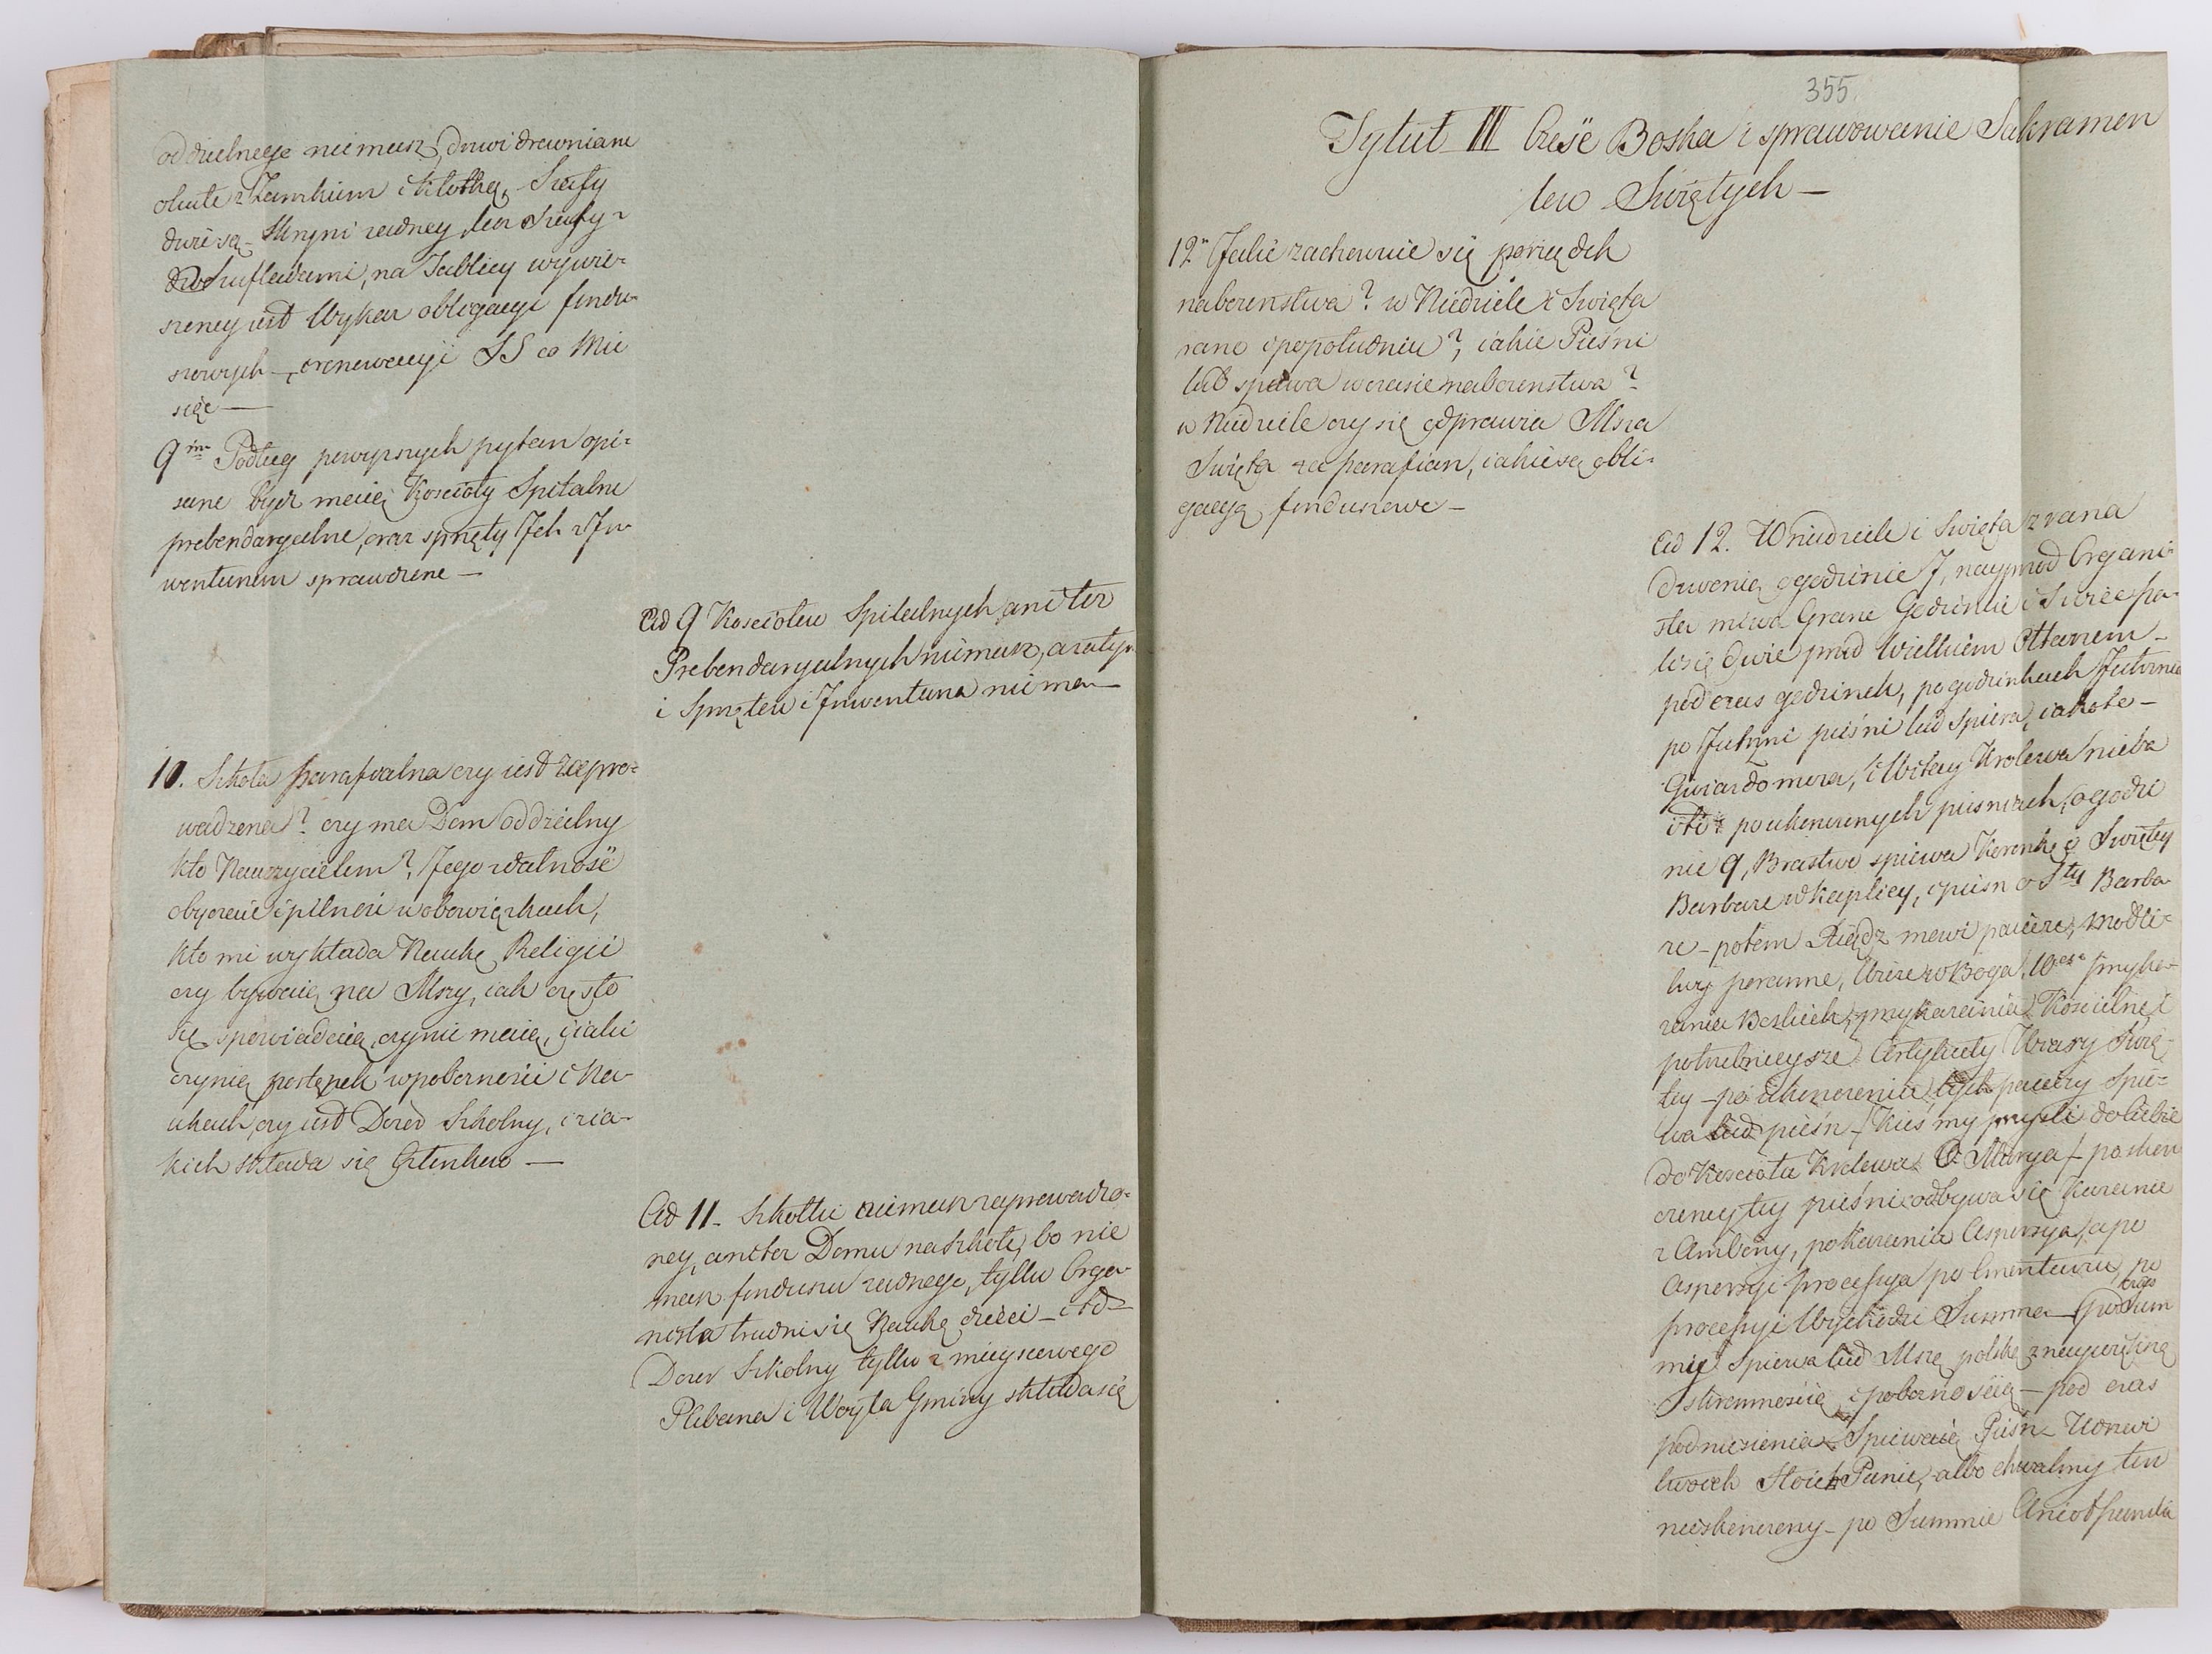 oddzielnego niemasz, drzwi drewniane
okute z Zamkiem i Kłotką, Szafy
dwie są, Skrzyni żadney, lecz Szafy z
szufladami, na Tablicy wywie-
szoney iest Wykaz obligacyi fundu-
szowych, orenowacyi SS co Mie
siąc —
9no Podług powyższych pytań opi-
sane bydź maią Kościoły Spitalne
prebendaryalne, oraz sprzęty Ich z In-
wentarzem sprawdzone —
Ad 9 Kościołow Spitalnych, ani też
Prebendaryalnych niemasz, a zatym
i Sprzętow i Inwentarza niema —
10. Szkoła parafialna czy iest zapro-
wadzona? czy ma Dom oddzielny
kto Nauczycielem? Jego zdatność
obyczaie i pilność w obowiązkach,
kto mi wykłada Naukę Religii
czy bywaią na Mszy, iak często
się spowiadaią, czynić maią, i iaki
czynią postępek w pobożności i Na-
ukach, czy iest Dozor Szkolny, i z ia-
kich składa się Członkow —
Ad 11. Szkółki niemasz zaprowadzo-
ney, ani też Domu na szkołę, bo nie
masz funduszu żadnego, tylko Orga-
nista trudni się Nauką dzieci — itd
Dozor Szkolny tylko z mieyscowego
Plebana i Woyta Gminy składa się
355.
Tytuł III Cześć Boska i sprawowanie Sakramen
tow Świętych —
12o Jaki zachowuie się porządek
nabożeństwa? w Niedziele i Święta
rano i popołudniu?, iakie Pieśni
lud śpiewa w czasie nabożeństwa?
w Niedziele czy się odprawia Msza
Święta za parafian, iakie są obli-
gacye funduszowe —
Ad 12. W niedziele i Święta zrana
dzwonią o godzinie 7, nayprzod Organi-
sta miewa Grane Godzinki i Swiec pa-
li się dwie przed Wielkiem Ołtarzem —
podczas godzinek, po godzinkach Jutrznia
po Jutrzni pieśni lud śpiewa, iakoto —
Gwiazdo morza, i Witay Krolowa nieba
itd: po ukończonych pieśniach, o godzi
nie 9, Bractwo spiewa Koronkę o Świętey
Barbarze w Kaplicy, i pieśn o Stey Barba-
rze — potem Xiądz mowi pacierz, modli-
twy poranne, Wierze w Boga, 10cio przyka-
zania Boskich, przykazania Kościelne, i
potrzebnieysze Artykuły Wiary Świę-
tey — po ukończeniu tych pacierzy śpie-
wa lud pieśń / Któś my przyszli do Ciebie
do Kościoła Krolowa O Marya / po skoń
czoney tey pieśni odbywa się Kazanie
z Ambony, po Kazaniu Aspersya, a po
Aspersyi processya po Cmentarzu, po
processyi Wychodzi Summa — podczas Sum
my Spiewa lud Mszę polską z naywiększą
skromnością i pobożnością — pod czas
podniesienia Spiewaią Pieśń U drzwi
twoich Stoię Panie, albo chwalmy ten
nieskończony — po Summie Anioł pański